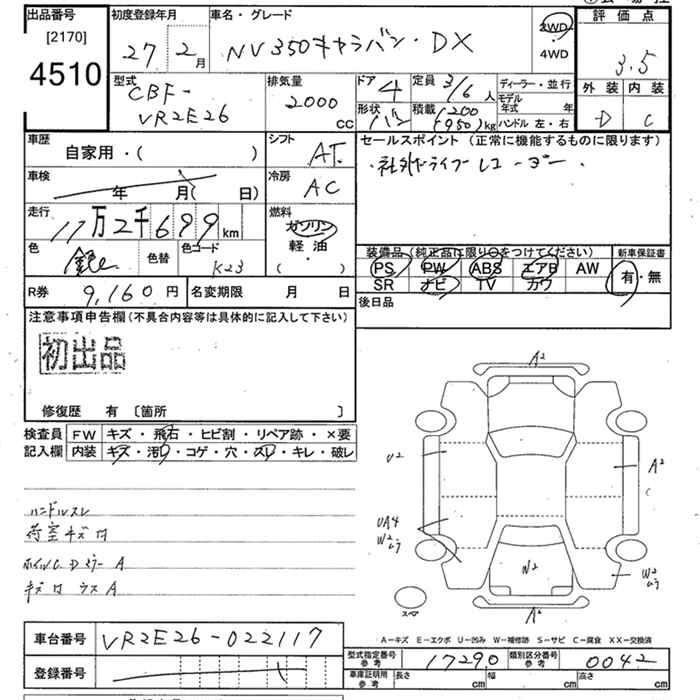 出品番号
[2170]
4510
初度登録年月
27年 2月
車名・グレード
NV350キャラバン・DX
2WD
4WD
評価点
3.5
外装 内装
D C
型式
CBF-
VR2E26
排気量
2000
CC
ドア
4
形状
バン
定員 3/6人
積載 1200
(950)kg
ディーラー・並行
モデル年式 年
ハンドル 左・右
車歴
自家用・( )
シフト
AT
セールスポイント(正常に機能するものに限ります)
・社外ドライブレコーダー・
車検
年 月( 日)
冷房
AC
走行
11万2千699km
燃料
ガソリン
軽油
( ・ )
色
銀
色替
色コード
K23
装備品(純正品に限り○をつけてください)
PS PW ABS エアB AW
SR ナビ TV カワ
新車保証書
有・無
R券 9,160円
名変期限 月 日
後日品
注意事項申告欄(不具合内容等は具体的に記入して下さい)
初出品
修復歴 有 〔箇所 〕
検査員
記入欄
FW キズ・飛石・ヒビ割・リペア跡・×要
内装 キズ・汚レ・コゲ・穴・スレ・キレ・破レ
ハンドルスレ
荷室キズロ
ホイルC Dミラー A
キズロ ウスA
A2
U2
A2
UA4
W2
ムラ
W2
ムラ
W2
スペア
A2
A-キズ E-エクボ U-凹み W-補修跡 S-サビ C-腐食 XX-交換済
車台番号 VR2E26-022117
登録番号
型式指定番号
参考
17290
類別区分番号
参考
0042
車庫証明用
参考
長さ cm 幅 cm 高さ cm